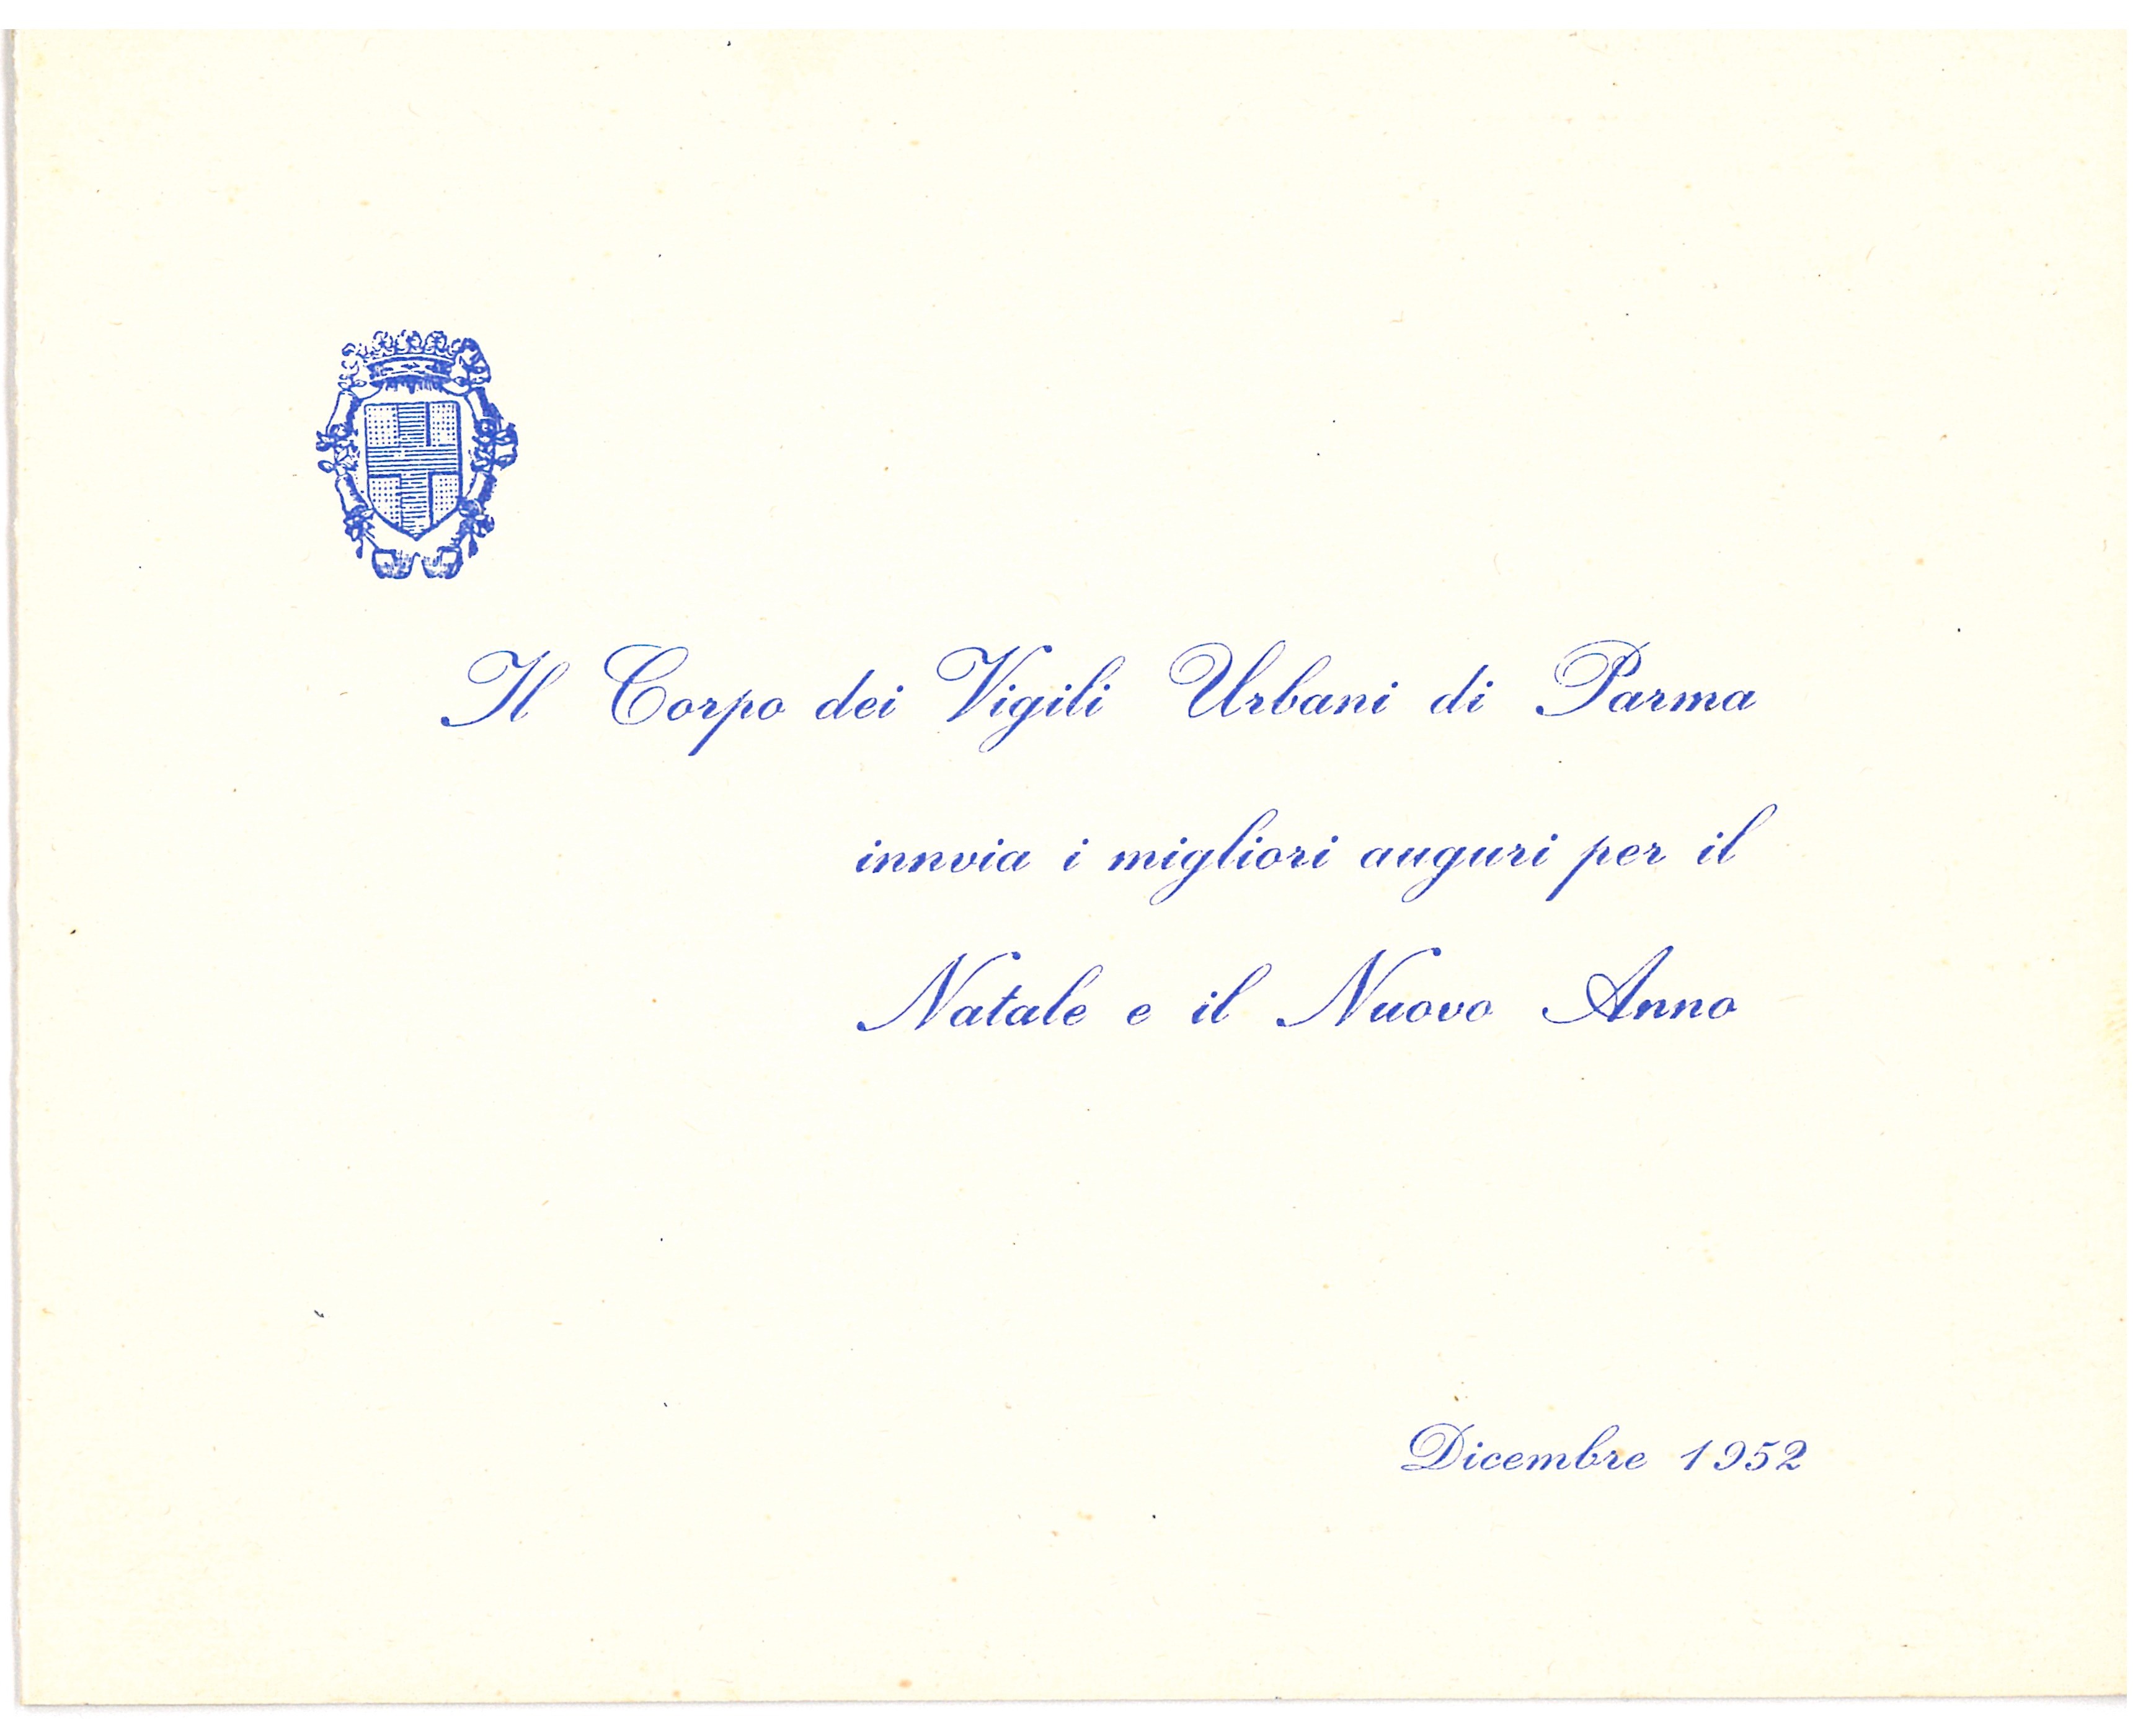 Il Corpo dei Vigili Urbani di Parma
innvia i migliori auguri per il
Natale e il Nuovo Anno
Dicembre 1952